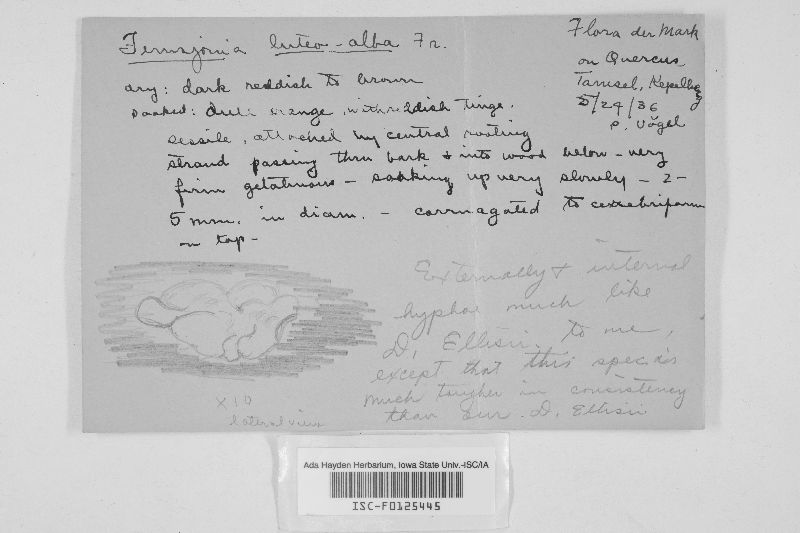 Femsjonia luteo-alba Fr.
Flora der Mark
on Quercus
Tamsel,
5/24/36
P. Vogel
dry: dark reddish to brown
soaked: dull orange, with reddish tinge.
sessile, attached by central rooting
strand passing thru bark & into wood below - very
firm gelatinous - soaking up very slowly - 2-
5 mm. in diam. - corrugated to cerebriform
on top -
Externally & internal
hyphae much like
D. Ellisii to me,
except that this species
much tougher in consistency
than our D. Ellisii
X10
lateral view
Ada Hayden Herbarium, Iowa State Univ.-ISC/IA
ISC-F0125445